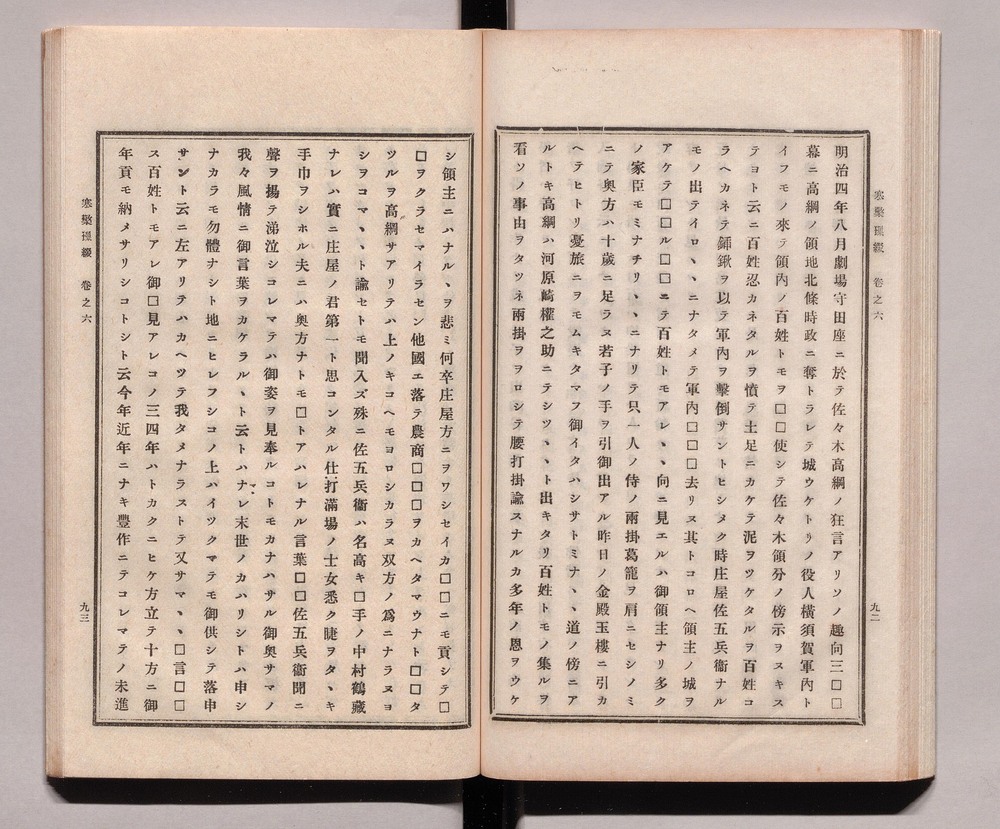 寒檠璅綴　卷之六
九二
明治四年八月劇場守田座ニ於テ佐々木高綱ノ狂言アリソノ趣向三□□
幕ニ高綱ノ領地北條時政ニ奪トラレテ城ウケトリノ役人横須賀軍內ト
イフモノ來テ領內ノ百姓トモヲ□□使シテ佐々木領分ノ傍示ヲヌキス
テヨト云ニ百姓忍カネタルヲ憤テ土足ニカケテ泥ヲツケタルヲ百姓コ
ラヘカネテ鋪鍬ヲ以テ軍內ヲ擊倒サントヒシメク時庄屋佐五兵衞ナル
モノ出テイロヽヽニナタメテ軍內□□□去リヌ其トコロヘ領主ノ城ヲ
アケテ□□ル□□ニテ百姓トモアレヽヽ向ニ見エルハ御領主ナリ多ク
ノ家臣モミナチリヽヽニナリテ只一人ノ侍ノ兩掛葛籠ヲ肩ニセシノミ
ニテ奧方ハ十歲ニ足ラヌ若子ノ手ヲ引御出アル昨日ノ金殿玉樓ニ引カ
ヘテヒトリ憂旅ニヲモムキタマフ御イタハシサトミナヽヽ道ノ傍ニア
ルトキ高綱ハ河原崎權之助ニテシツヽヽト出キタリ百姓トモノ集ルヲ
看ソノ事由ヲタツネ兩掛ヲヲロシテ腰打掛諭スナルカ多年ノ恩ヲウケ
シ領主ニハナルヽヲ悲ミ何卒庄屋方ニヲワシセイカ□□ニモ貢シテ□
□ヲクラセマイラセン他國エ落テ農商□□□ヲカヘタマウナト□□タ
ツルヲ高綱サアリテハ上ノキコヘモヨロシカラヌ双方ノ爲ニナラヌヨ
シヲコマヽヽト諭セトモ聞入ズ殊ニ佐五兵衞ハ名高キ□手ノ中村鶴藏
ナレハ實ニ庄屋ノ君第一ト思コンタル仕打滿場ノ士女悉ク睫ヲタヽキ
手巾ヲシホル夫ニハ奧方ナトモ□トアハレナル言葉□□佐五兵衞聞ニ
聲ヲ揚テ涕泣シコレマテハ御姿ヲ見奉ルコトモカナハサル御奧サマノ
我々風情ニ御言葉ヲカケラルヽト云トハナレ末世ノカハリシトハ申シ
ナカラモ勿體ナシト地ニヒレフシコノ上ハイツクマテモ御供シテ落申
サント云ニ左アリテハカヘツテ我タメナラストテ又サマヽヽ□言□□
ス百姓トモアレ御□見アレコノ三四年ハトカクニヒケ方立テ十方ニ御
年貢モ納メサリシコトシト云今年近年ニナキ豐作ニテコレマテノ未進
寒檠璅綴　卷之六
九三